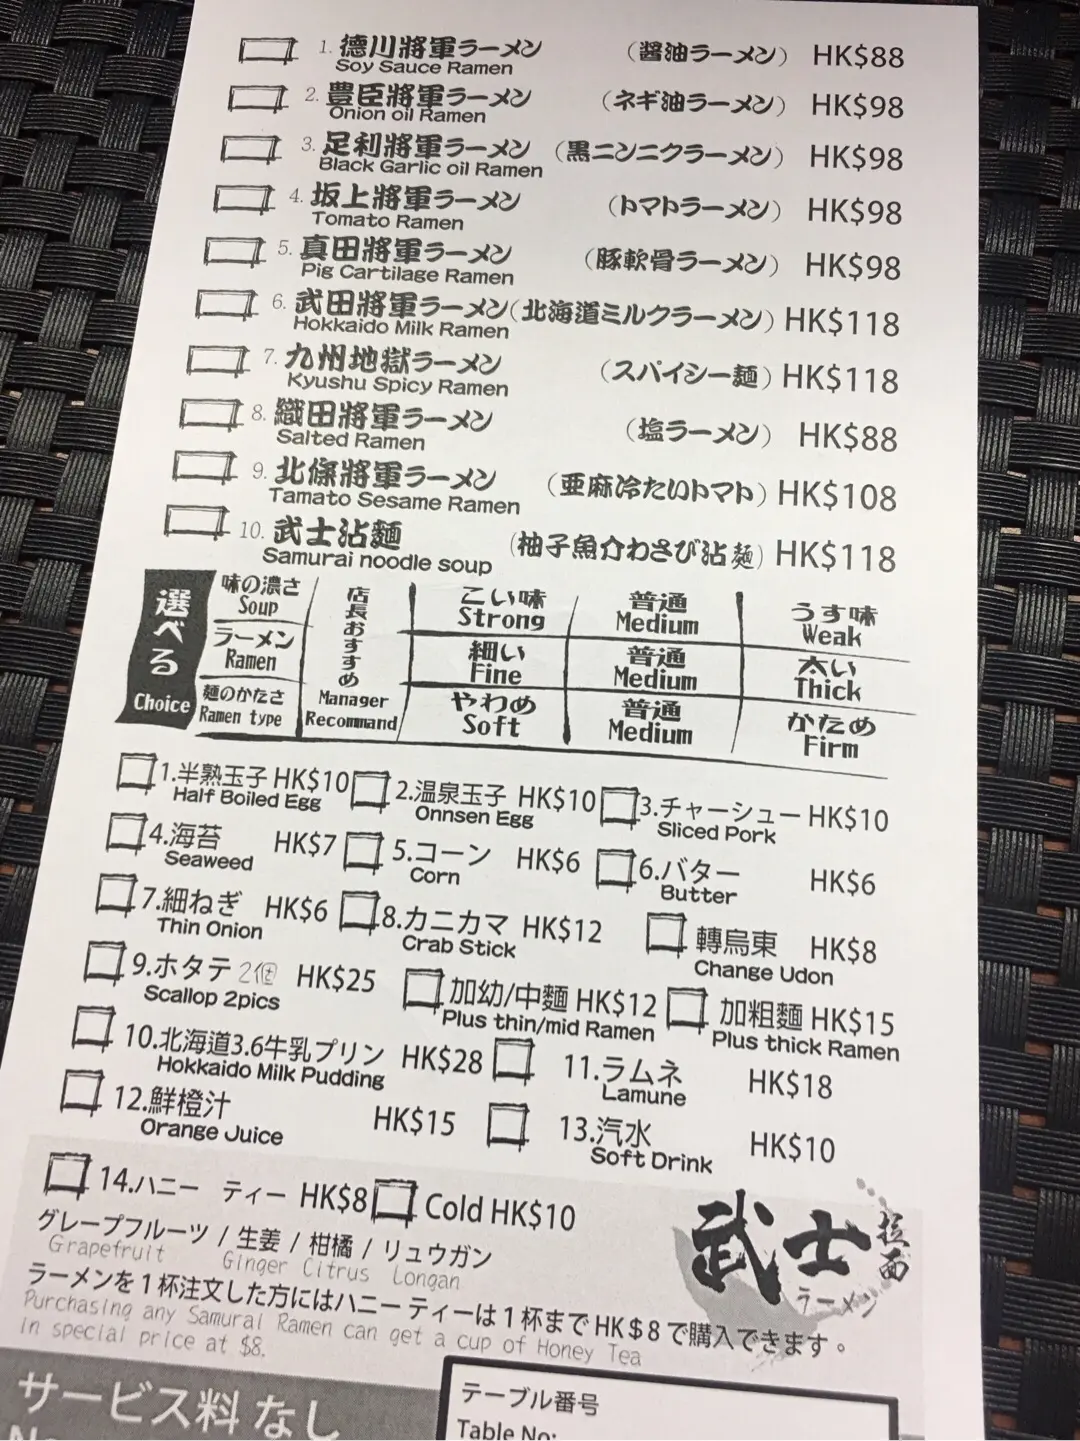 1. 德川將軍ラーメン (醤油ラーメン) HK$88
Soy Sauce Ramen
2. 豊臣將軍ラーメン (ネギ油ラーメン) HK$98
Onion oil Ramen
3. 足利將軍ラーメン (黒ニンニクラーメン) HK$98
Black Garlic oil Ramen
4. 坂上將軍ラーメン (トマトラーメン) HK$98
Tomato Ramen
5. 真田將軍ラーメン (豚軟骨ラーメン) HK$98
Pig Cartilage Ramen
6. 武田將軍ラーメン (北海道ミルクラーメン) HK$118
Hokkaido Milk Ramen
7. 九州地獄ラーメン (スパイシー麺) HK$118
Kyushu Spicy Ramen
8. 織田將軍ラーメン (塩ラーメン) HK$88
Salted Ramen
9. 北條將軍ラーメン (亜麻冷たいトマト) HK$108
Tamato Sesame Ramen
10. 武士沾麺 (柚子魚介わさび沾麺) HK$118
Samurai noodle soup
選べる Choice
味の濃さ 店長おすすめ こい味 普通 うす味
Soup Manager Recommand Strong Medium Weak
ラーメン 細い 普通 太い
Ramen Fine Medium Thick
麺のかたさ やわめ 普通 かため
Ramen type Soft Medium Firm
1.半熟玉子 HK$10 2.温泉玉子 HK$10 3.チャーシュー HK$10
Half Boiled Egg Onnsen Egg Sliced Pork
4.海苔 HK$7 5.コーン HK$6 6.バター HK$6
Seaweed Corn Butter
7.細ねぎ HK$6 8.カニカマ HK$12 轉烏東 HK$8
Thin Onion Crab Stick Change Udon
9.ホタテ 2個 HK$25 加幼/中麵 HK$12 加粗麵 HK$15
Scallop 2pics Plus thin/mid Ramen Plus thick Ramen
10.北海道3.6牛乳プリン HK$28 11.ラムネ HK$18
Hokkaido Milk Pudding Lamune
12.鮮橙汁 HK$15 13.汽水 HK$10
Orange Juice Soft Drink
14.ハニー ティー HK$8 Cold HK$10
グレープフルーツ / 生姜 / 柑橘 / リュウガン
Grapefruit Ginger Citrus Longan
武士 拉面
ラーメン
ラーメンを1杯注文した方にはハニーティーは1杯までHK$8で購入できます。
Purchasing any Samurai Ramen can get a cup of Honey Tea
in special price at $8.
サービス料 なし
テーブル番号
Table No: